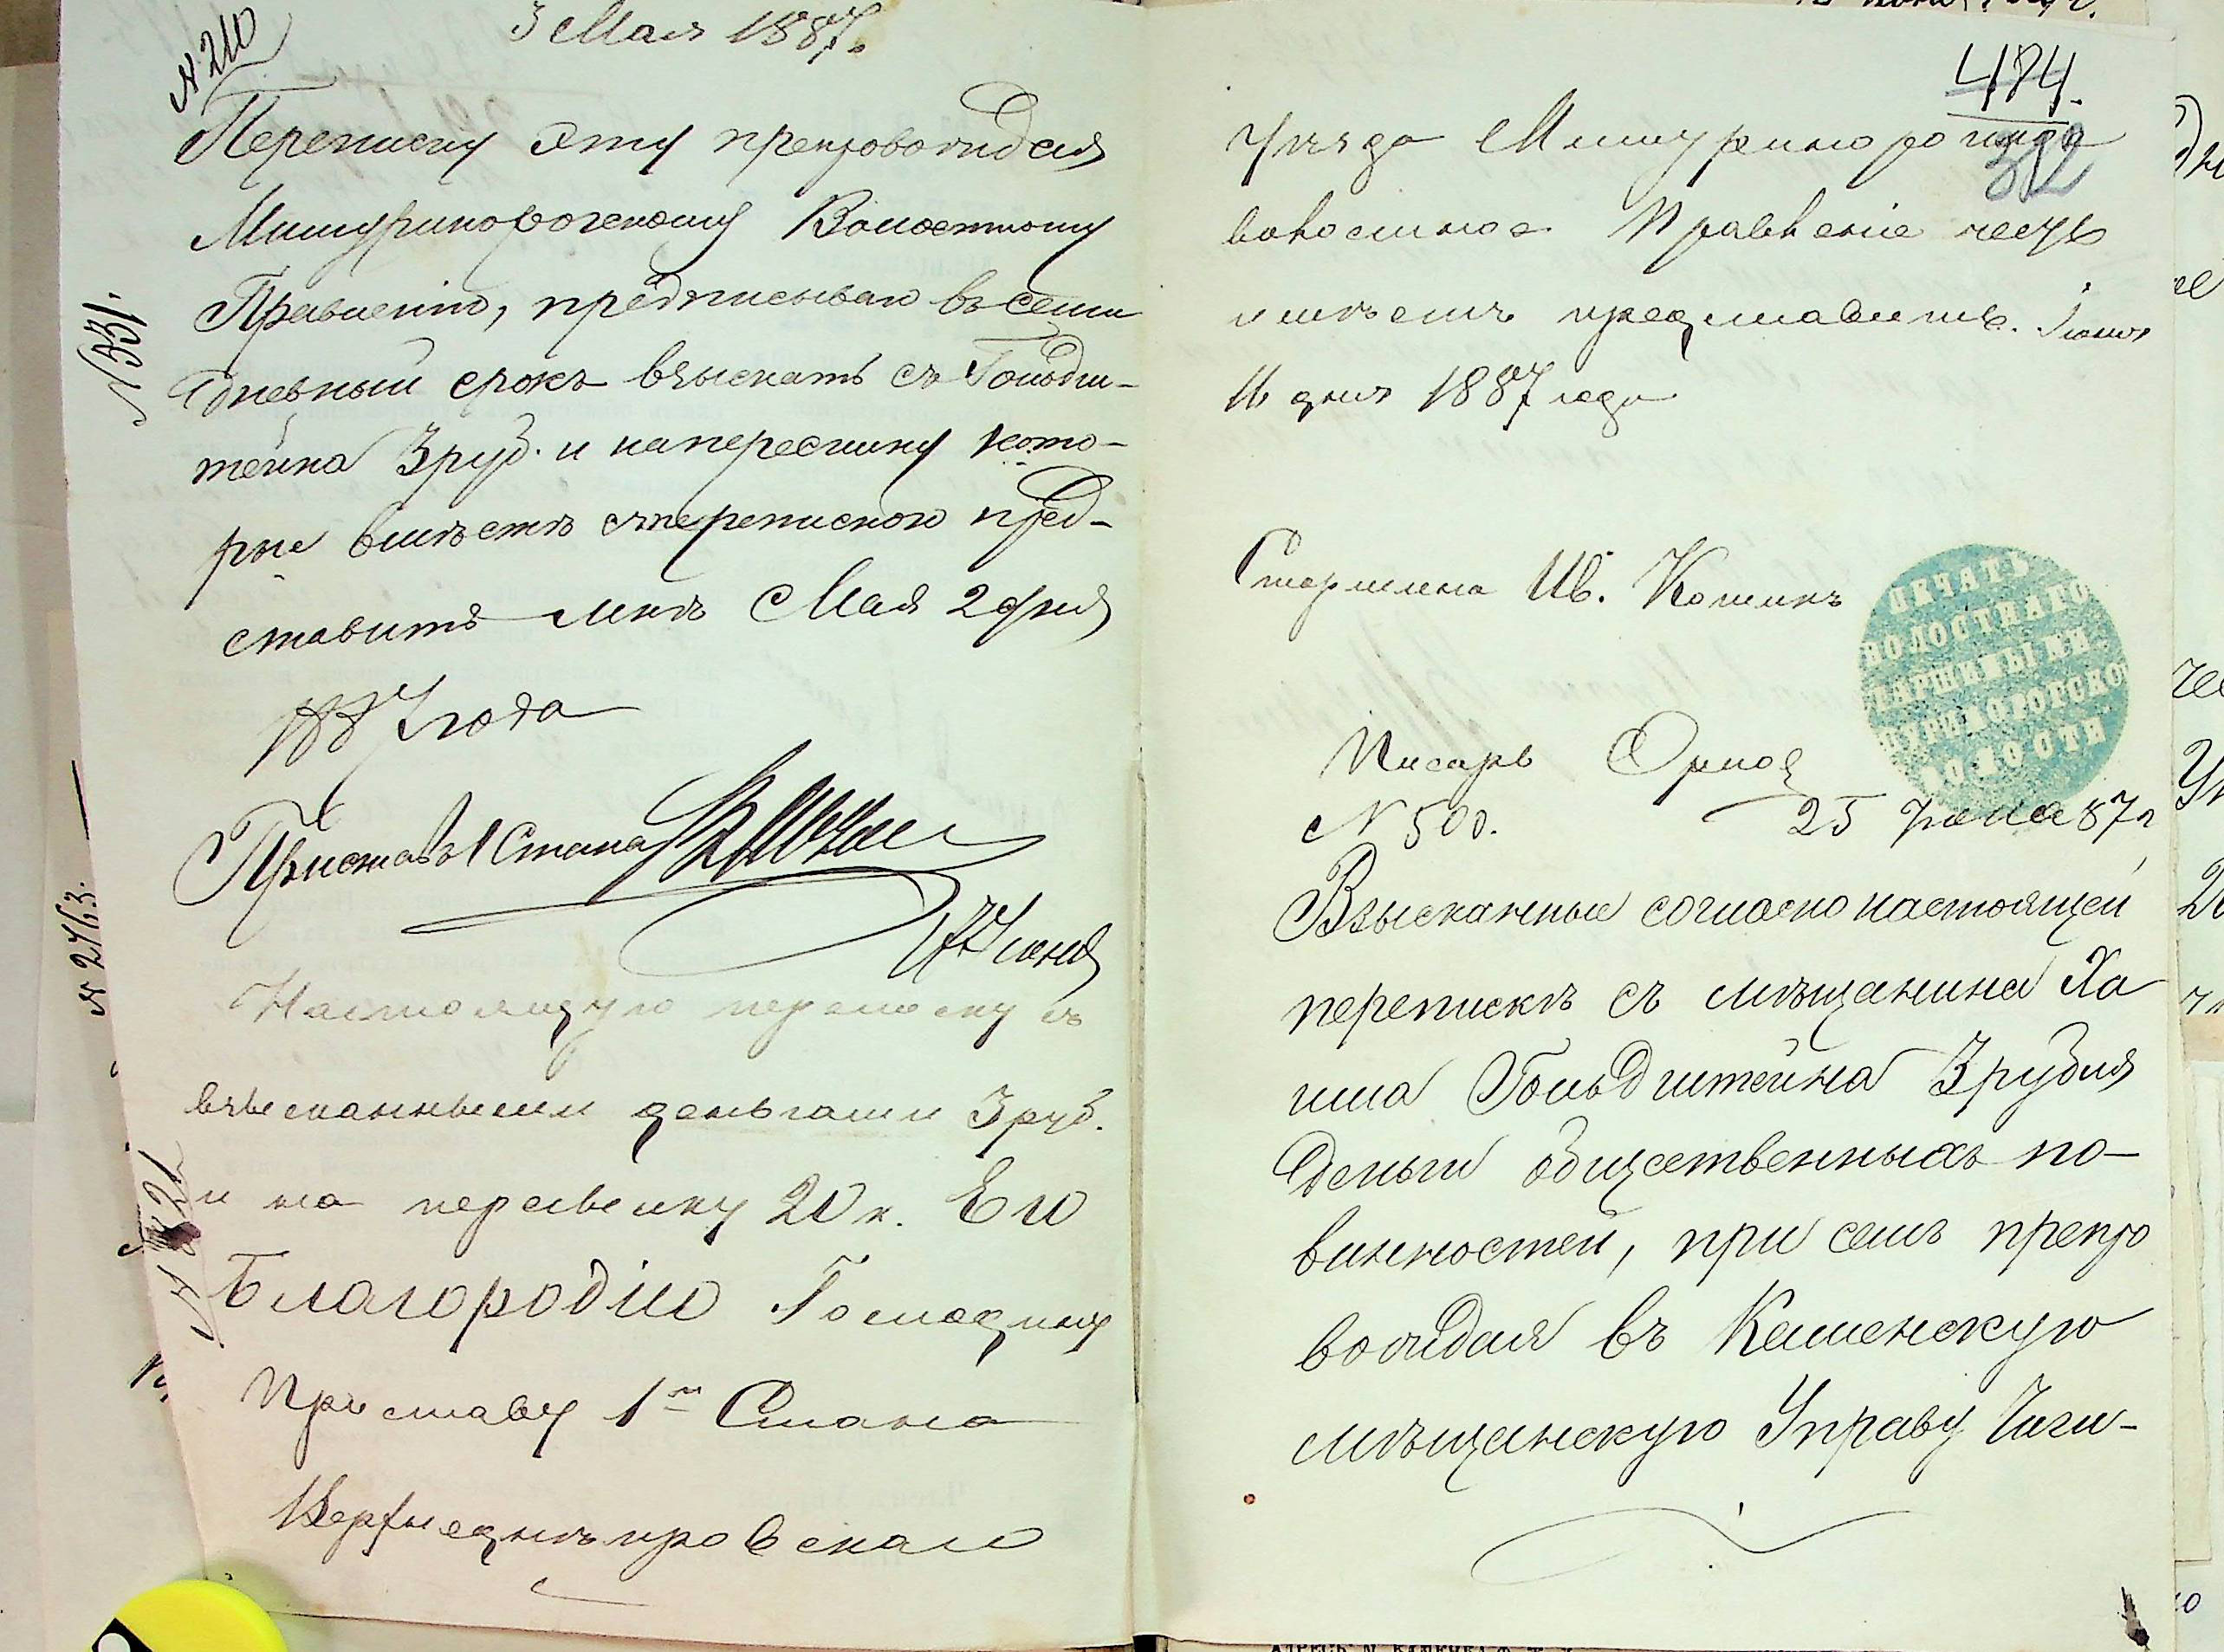 3 Мая 1887 г.
№ 210
Переписку эту препровождая
Мишуринорогскому Волостному
Правленію, предписываю въ семи
дневный срокъ взыскать съ Гольдш-
тейна 3 руб. и на пересылку кото-
рые вместѣ съ перепискою пред-
ставить мнѣ Мая 2 дня
1887 года
Приставъ 1 Стана
№ 551.
№ 2463.
17 Іюня
Настоящую переписку съ
взысканными деньгами 3 руб.
и на пересылку 20 к. Его
Благородію Господину
Приставу 1го Стана
Верхнеднѣпровскаго
484.
312
Уѣзда Мишуринорогское
волостное Правленіе честь
имѣетъ представить. Іюня
11 дня 1887 года
Старшина Ив. Кошикъ
ПЕЧАТЬ
ВОЛОСТНАГО
СТАРШИНЫ МИ
ШУРИНОРОГСКОЙ
ВОЛОСТИ
Писарь
№ 500.
25 Іюня 87 г
Взысканные согласно настоящей
перепискѣ съ мѣщанина Ха
има Гольдштейна 3 рубля
деньги общественныхъ по-
винностей, при семъ препро
вождая въ Каменскую
мѣщанскую Управу Чиги-